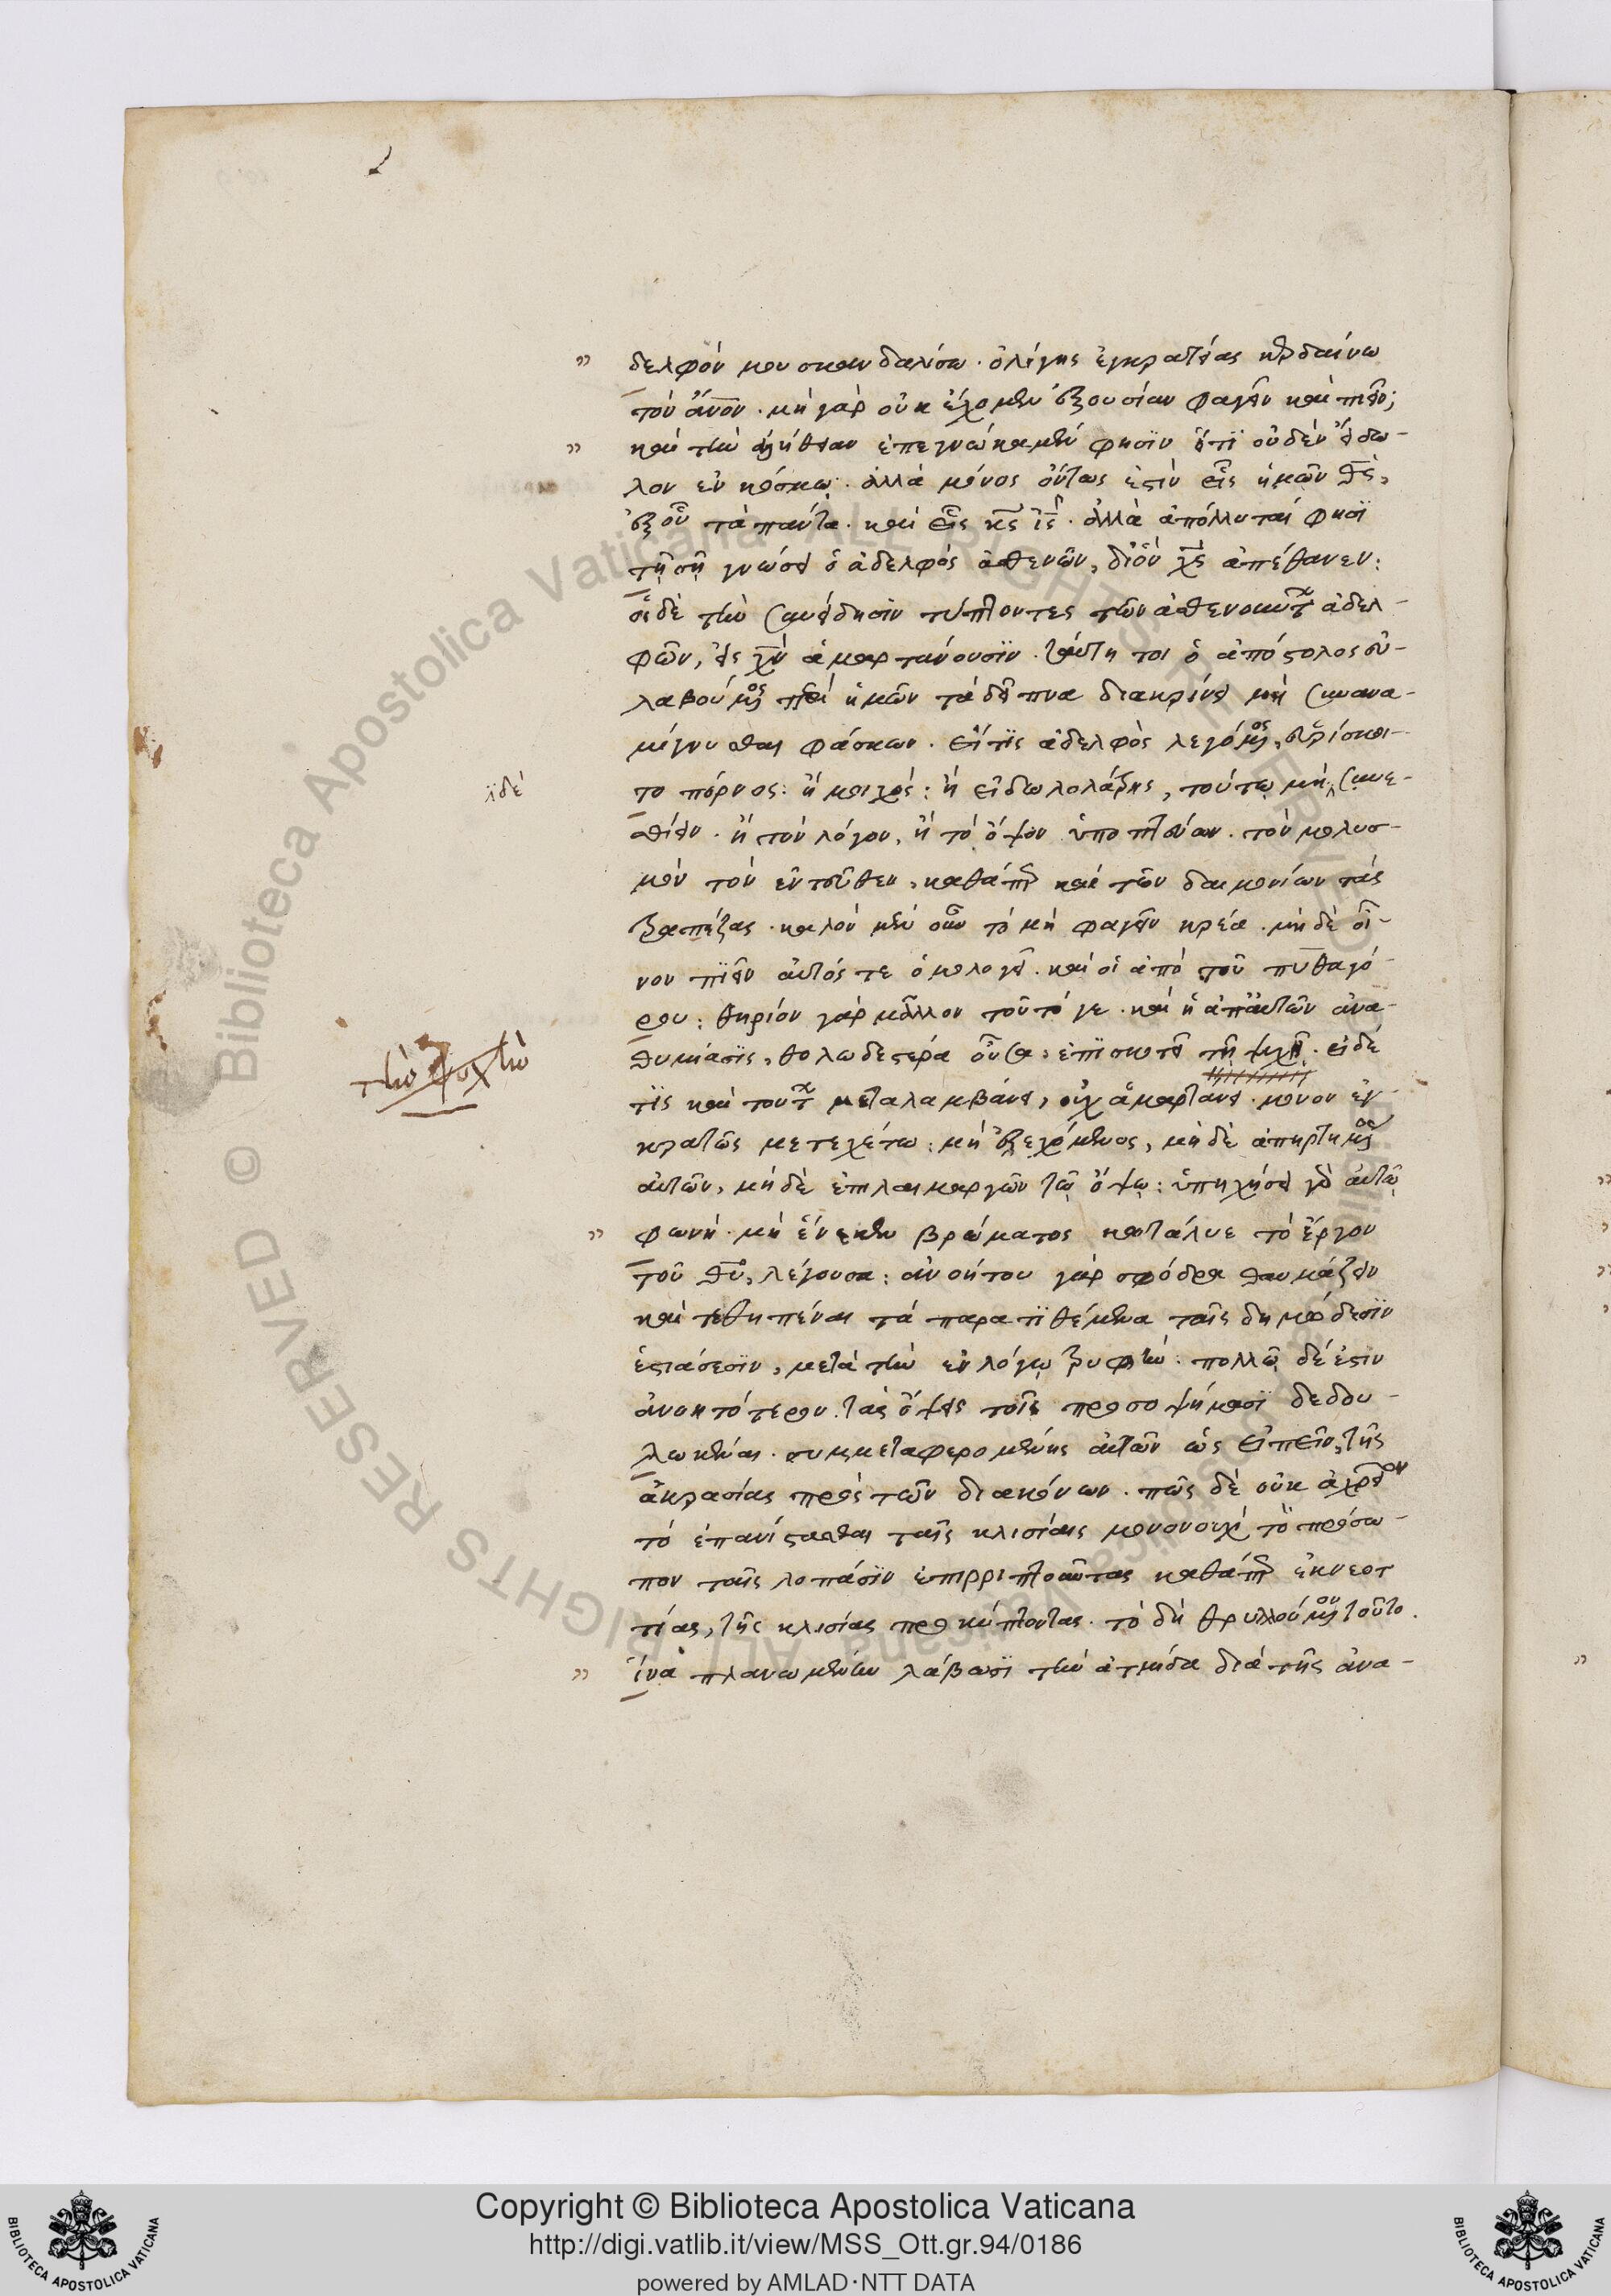 δελφόν μου σκανδαλίσω. ὀλίγης ἐγκρατείας κερδαίνω
τὸν ἄνον. μὴ γὰρ οὐκ ἔχομεν ἐξουσίαν φαγεῖν καὶ πιεῖν;
καὶ τὴν ἀλήθειαν ἐπεγνώκαμέν φησϊν ὅτϊ οὐδὲν εἴδω-
λον ἐν κόσμω. ἀλλὰ μόνος ὄντως ἐστὶν εἷς ἡμῶν θς,
ἐξ οὗ τὰ πάντα. καὶ εἷς κς ις. ἀλλὰ ἀπόλλυταί φησϊ
τῇ σῇ γνώσει ὁ ἀδελφὸς ἀσθενῶν, διὃν χς ἀπέθανεν:
οἱ δὲ τὴν συνείδησϊν τύπτοντες τῶν ἀσθενούντ ἀδελ-
φῶν, εἰς χν ἁμαρτάνουσϊν. ταύτη τοι ὁ ἀπόστολος εὐ-
λαβούμος περὶ ἡμῶν τὰ δεῖπνα διακρίνει μὴ συνανα-
μίγνυσθαι φάσκων. εἴ τϊς ἀδελφὸς λεγόμος, εὑρίσκοι-
το πόρνος: ἢ μοιχός: ἢ εἰδωλολάτρης, τούτω μὴ συνε-
ϊδὲ
σθίειν. ἢ τὸν λόγον, ἢ τὸ ὄψον ὑποπτεύων. τὸν μολυσ-
μὸν τὸν ἐντεῦθεν, καθάπερ καὶ τῶν δαιμονίων τὰς
τραπέζας. καλὸν μὲν οὖν τὸ μὴ φαγεῖν κρέα. μὴ δὲ οἶ-
νον πϊεῖν αὐτός τε ὁμολογεῖ. καὶ οἱ ἀπὸ τοῦ πυθαγό-
ρου: θηρίον γὰρ μᾶλλον τοῦτό γε. καὶ ἡ ἀπαὐτῶν ἀνα-
θυμίασϊς, θολωδεστέρα οὖσα, ἐπϊσκοτεῖ τῇ ψυχῇ. εἰ δέ
τὴν ψυχὴν
τϊς καὶ τούτ μεταλαμβάνει, οὐχ ἁμαρτάνει. μόνον ἐγ-
κρατῶς μετεχέτω: μὴ ἐξεχόμενος, μὴ δὲ ἀπηρτημος
αὐτῶν, μὴ δὲ ἐπιλαιμαργῶν τῷ ὄψω: ὑπηχήσει γὰρ αὐτῷ
φωνή. μὴ ἕνεκεν βρώματος κατάλυε τὸ ἔργον
τοῦ θυ, λέγουσα: ἀνοήτου γὰρ σφόδρα θαυμάζειν
καὶ τεθηπέναι τὰ παρατϊθέμενα ταῖς δημώδεσϊν
ἑστιάσεσϊν, μετὰ τὴν ἐν λόγω τρυφὴν. πολλῷ δέ ἐστιν
ἀνοητότερον. τὰς ὄψεις τοῖς προσοψήμασϊ δεδου-
λωκέναι. συμμεταφερομένης αὐτῶν ὡς εἰπεῖν, τῆς
ἀκρασίας πρὸς τῶν διακόνων. πῶς δὲ οὐκ ἀχρεῖον
τὸ ἐπανίστασθαι ταῖς κλισίαις μονονουχὶ τὸ πρόσω-
πον ταῖς λοπάσϊν ἐπιρριπτοῦντας καθάπερ ἐκνεοτ
τίας, τῆς κλισίας προκύπτοντας. τὸ δὴ θρυλλούμον τοῦτο.
ἵνα πλανωμένην λάβωσϊ τὴν ἀτμίδα διὰ τῆς ἀνα-
Copyright © Biblioteca Apostolica Vaticana
http://digi.vatlib.it/view/MSS_Ott.gr.94/0186
powered by AMLAD·NTT DATA